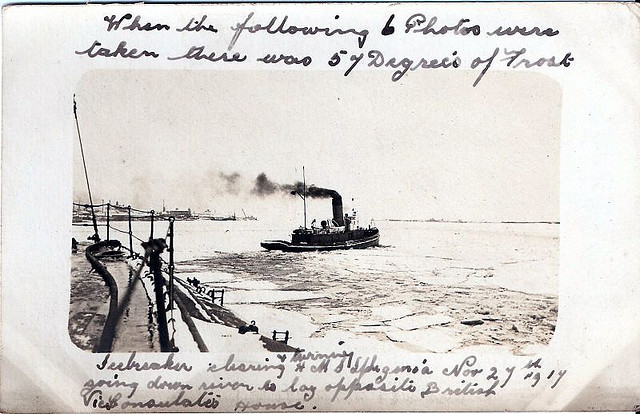 When the following 6 Photos were
taken there was 57 Degrees of Frost
Icebreaker clearing & turning H M S Iphigenia Nov 27th 1917
going down river to lay opposite British
Vice Consulate's House.